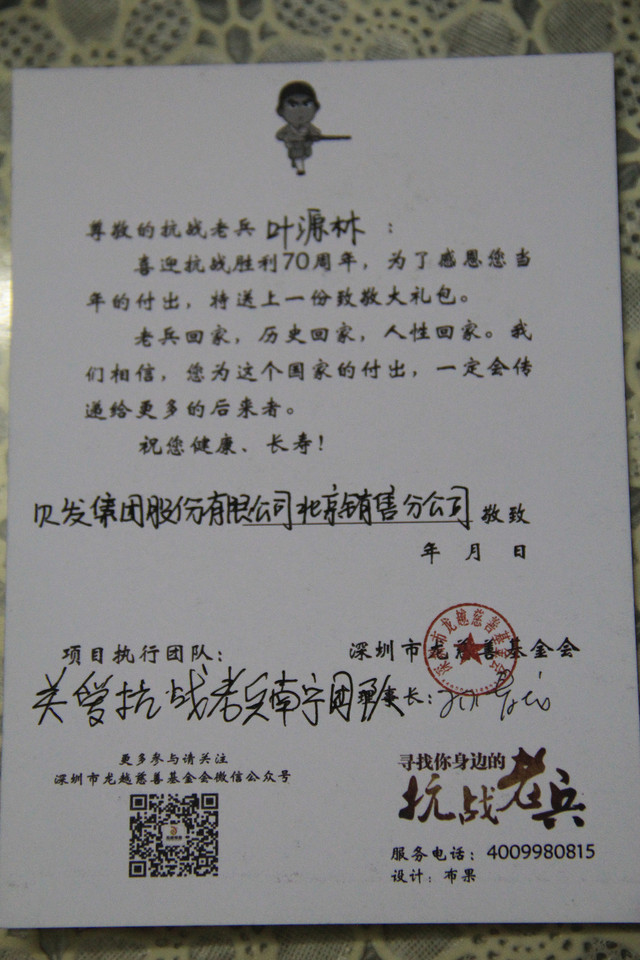 尊敬的抗战老兵 叶源林 ：
喜迎抗战胜利70周年，为了感恩您当
年的付出，特送上一份致敬大礼包。
老兵回家，历史回家，人性回家。我
们相信，您为这个国家的付出，一定会传
递给更多的后来者。
祝您健康、长寿！
贝发集团股份有限公司北京销售分公司 敬致
年 月 日
项目执行团队： 深圳市龙越慈善基金会
关爱抗战老兵南宁团队 事长：
更多参与请关注
深圳市龙越慈善基金会微信公众号
寻找你身边的
抗战老兵
服务电话：4009980815
设计：布果